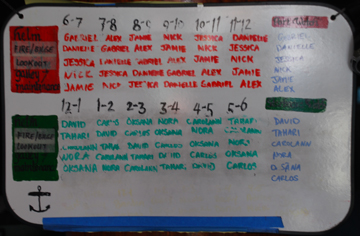 6-7 7-8 8-9 9-10 10-11 11-12
Helm GABRIEL ALEX JAMIE NICK JESSICA DANIELLE GABRIEL
FIRE/BILGE DANIELLE GABRIEL ALEX JAMIE NICK JESSICA DANIELLE
LOOKOUT JESSICA DANIELLE GABRIEL ALEX JAMIE NICK JESSICA
NICK JESSICA DANIELLE GABRIEL ALEX JAMIE NICK
JAMIE NICK JESSICA DANIELLE GABRIEL ALEX JAMIE
ALEX
12-1 1-2 2-3 3-4 4-5 5-6
DAVID CARLOS OKSANA NORA CAROLANN TAHARI DAVID
TAHARI DAVID CARLOS OKSANA NORA TAHARI
CAROLANN TAHARI DAVID CARLOS OKSANA NORA CAROLANN
NORA CAROLANN TAHARI DAVID CARLOS OKSANA
OKSANA NORA CAROLANN TAHARI DAVID CARLOS OKSANA
CARLOS